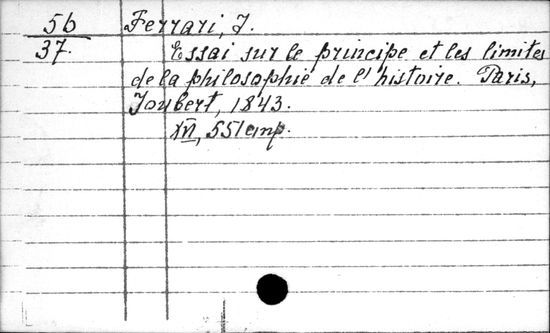 56 Ferrari, J.
37. Essai sur le principe et les limites
de la philosophie de l'histoire. Paris,
Joubert, 1843.
XVI, 551 стр.